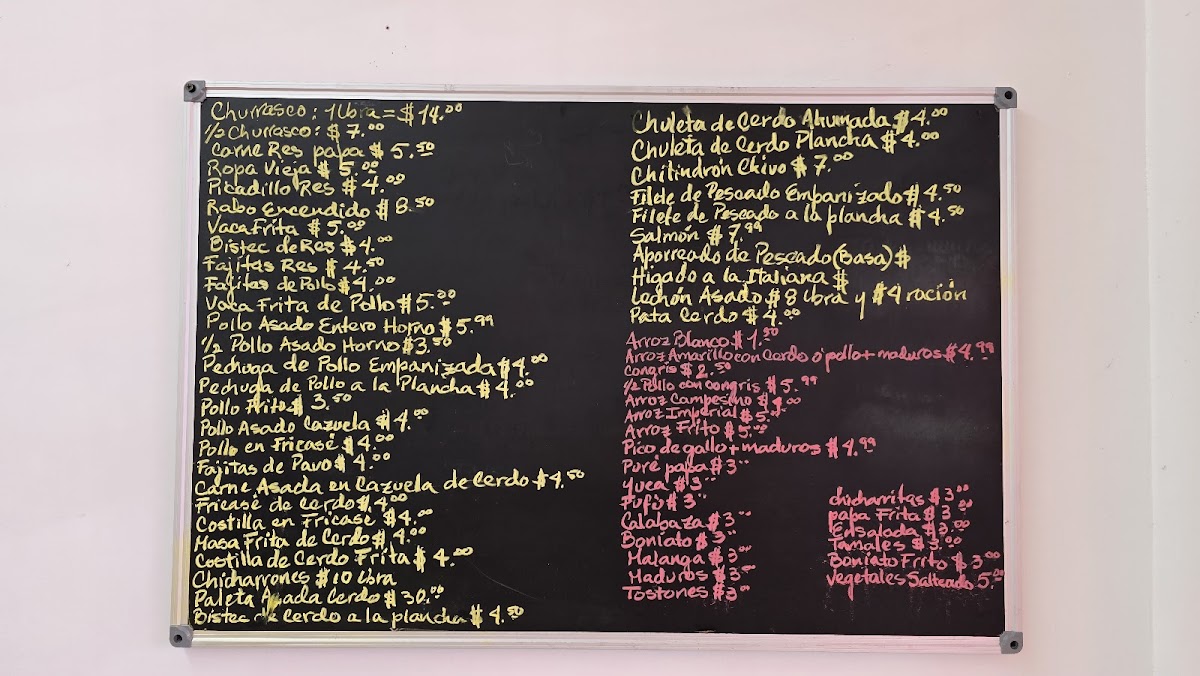 Churrasco: 1 libra = $14.00
1/2 Churrasco: $7.00
Carne Res papa $5.50
Ropa Vieja $5.00
Picadillo Res $4.00
Rabo Encendido $8.50
Vaca Frita $5.00
Bistec de Res $4.00
Fajitas Res $4.50
Fajitas de Pollo $4.00
Vaca Frita de Pollo $5.00
Pollo Asado Entero Horno $5.99
1/2 Pollo Asado Horno $3.50
Pechuga de Pollo Empanizada $4.00
Pechuga de Pollo a la Plancha $4.00
Pollo Frito $3.50
Pollo Asado Cazuela $4.00
Pollo en Fricasé $4.00
Fajitas de Pavo $4.00
Carne Asada en Cazuela de Cerdo $4.50
Fricasé de Cerdo $4.00
Costilla en Fricasé $4.00
Masa Frita de Cerdo $4.00
Costilla de Cerdo Frita $4.00
Chicharrones $10 libra
Paleta Asada Cerdo $30.00
Bistec de Cerdo a la plancha $4.50
Chuleta de Cerdo Ahumada $4.00
Chuleta de Cerdo Plancha $4.00
Chilindrón Chivo $7.00
Filete de Pescado Empanizado $4.50
Filete de Pescado a la plancha $4.50
Salmón $7.99
Aporreado de Pescado (Basa) $
Higado a la Italiana $
Lechón Asado $8 libra y $4 ración
Pata Cerdo $4.00
Arroz Blanco $1.50
Arroz Amarillo con Cerdo o pollo + maduros $4.99
Congris $2.50
1/2 Pollo con congris $5.99
Arroz Campesino $4.00
Arroz Imperial $5.00
Arroz Frito $5.00
Pico de gallo + maduros $4.99
Puré papa $3.00
Yuca $3.00
Fufú $3.00
Calabaza $3.00
Boniato $3.00
Malanga $3.00
Maduros $3.00
Tostones $3.00
chicharritas $3.00
papa Frita $3.00
Ensalada $3.00
Tamales $3.00
Boniato Frito $3.00
vegetales Salteado 5.00